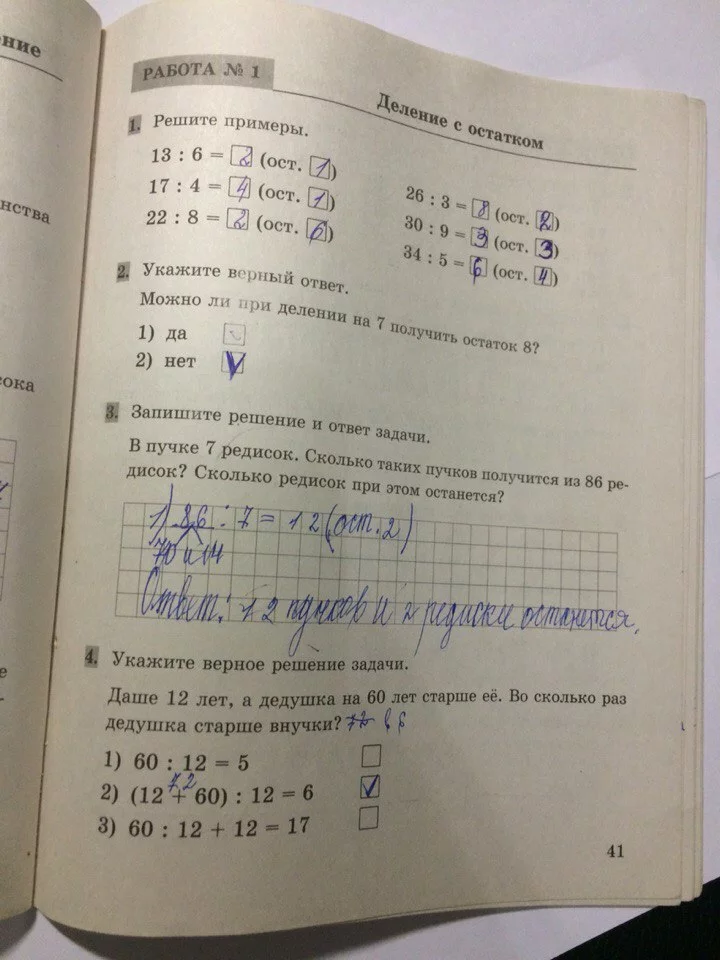 ние
нства
сока
е
РАБОТА № 1
Деление с остатком
1. Решите примеры.
13 : 6 = 2 (ост. 1)
17 : 4 = 4 (ост. 1)
22 : 8 = 2 (ост. 6)
26 : 3 = 8 (ост. 2)
30 : 9 = 3 (ост. 3)
34 : 5 = 6 (ост. 4)
2. Укажите верный ответ.
Можно ли при делении на 7 получить остаток 8?
1) да
2) нет V
3. Запишите решение и ответ задачи.
В пучке 7 редисок. Сколько таких пучков получится из 86 ре-
дисок? Сколько редисок при этом останется?
1) 86 : 7 = 12 (ост. 2)
70 и 14
Ответ: 12 пучков и 2 редиски останется.
4. Укажите верное решение задачи.
Даше 12 лет, а дедушка на 60 лет старше её. Во сколько раз
дедушка старше внучки? 72
1) 60 : 12 = 5
72
2) (12 + 60) : 12 = 6 ✓
3) 60 : 12 + 12 = 17
41